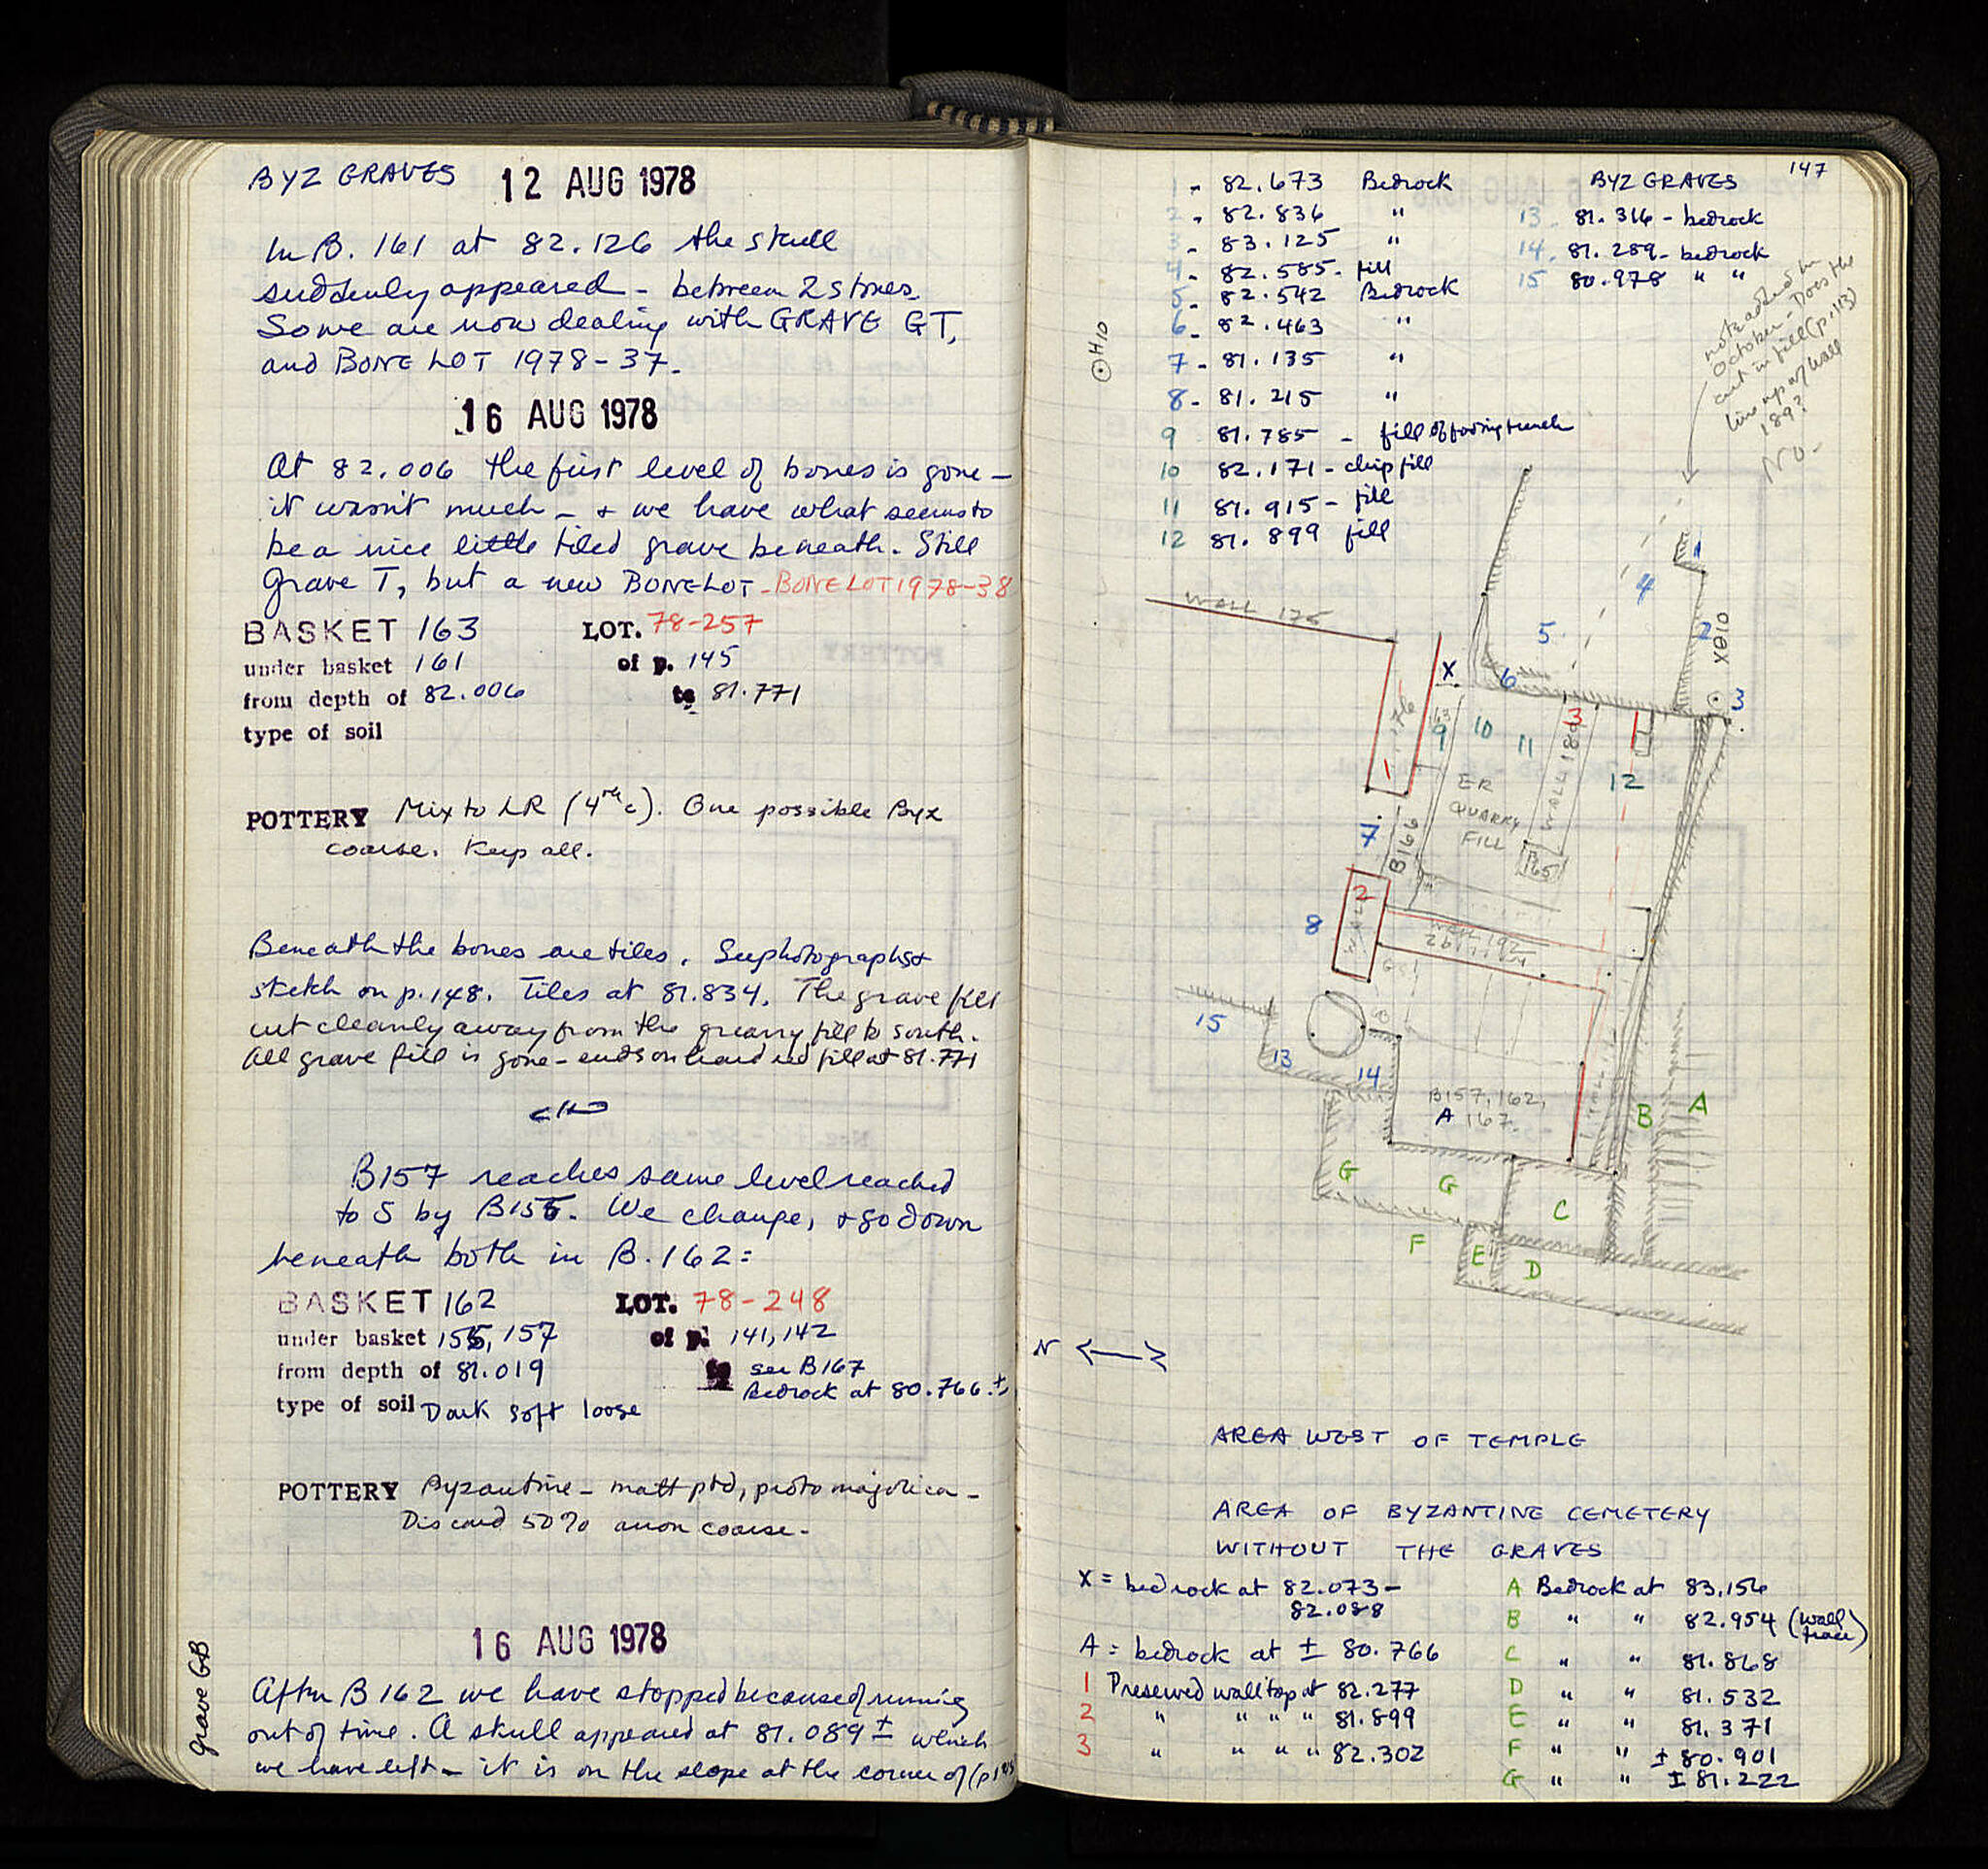 BYZ GRAVES 12 AUG 1978
In B. 161 at 82.126 the skull
suddenly appeared - between 2 stones.
So we are now dealing with GRAVE GT,
and BONE LOT 1978-37.
16 AUG 1978
At 82.006 the first level of bones is gone -
it wasn't much - + we have what seems to
be a nice little tiled grave beneath. Still
Grave T, but a new BONE LOT - BONE LOT 1978-38
BASKET 163 LOT. 78-257
under basket 161 of p. 145
from depth of 82.006 to 81.771
type of soil
POTTERY Mix to LR (4th c). One possible Byz
coarse. Keep all.
Beneath the bones are tiles. See photographs +
sketch on p. 148. Tiles at 81.834. The grave fill
cut cleanly away from the quarry fill to south.
All grave fill is gone - ends on hard red fill at 81.771
B157 reaches same level reached
to S by B155. We change, + go down
beneath both in B. 162:
BASKET 162 LOT. 78-248
under basket 155, 157 of p. 141, 142
from depth of 81.019 to see B167
Bedrock at 80.766 ±
type of soil Dark soft loose
POTTERY Byzantine - matt ptd, proto majolica -
Discard 50% anon coarse.
16 AUG 1978
After B 162 we have stopped because of running
out of time. A skull appeared at 81.089 ± which
we have left - it is on the slope at the corner of (p
grave GB
147
BYZ GRAVES
1 - 82.673 Bedrock
2 - 82.836 "
3 - 83.125 "
4 - 82.585 - fill
5 - 82.542 Bedrock
6 - 82.463 "
7 - 81.135 "
8 - 81.215 "
9 81.785 - fill of footing trench
10 82.171 - chip fill
11 81.915 - fill
12 81.899 fill
13. 81.316 - bedrock
14. 81.289 - bedrock
15 80.978 " "
note added in
October - Does the
cut in fill (p. 113)
line up w/ wall
189?
No -
H10
WALL 176
1
4
5
2
X
6
3
X010
176
163
9
10
11
3
WALL 189
12
1
ER
QUARRY
FILL
7
B166
165
2
WALL
8
WALL 192
15
13
14
B157, 162,
A 167.
B
A
G
G
C
F
E
D
N
AREA WEST OF TEMPLE
AREA OF BYZANTINE CEMETERY
WITHOUT THE GRAVES
X = bedrock at 82.073 -
82.088
A = bedrock at ± 80.766
1 Preserved wall top at 82.277
2 " " " " 81.899
3 " " " " 82.302
A Bedrock at 83.156
B " " 82.954 (wall
trace)
C " " 81.868
D " " 81.532
E " " 81.371
F " " ± 80.901
G " " ± 81.222